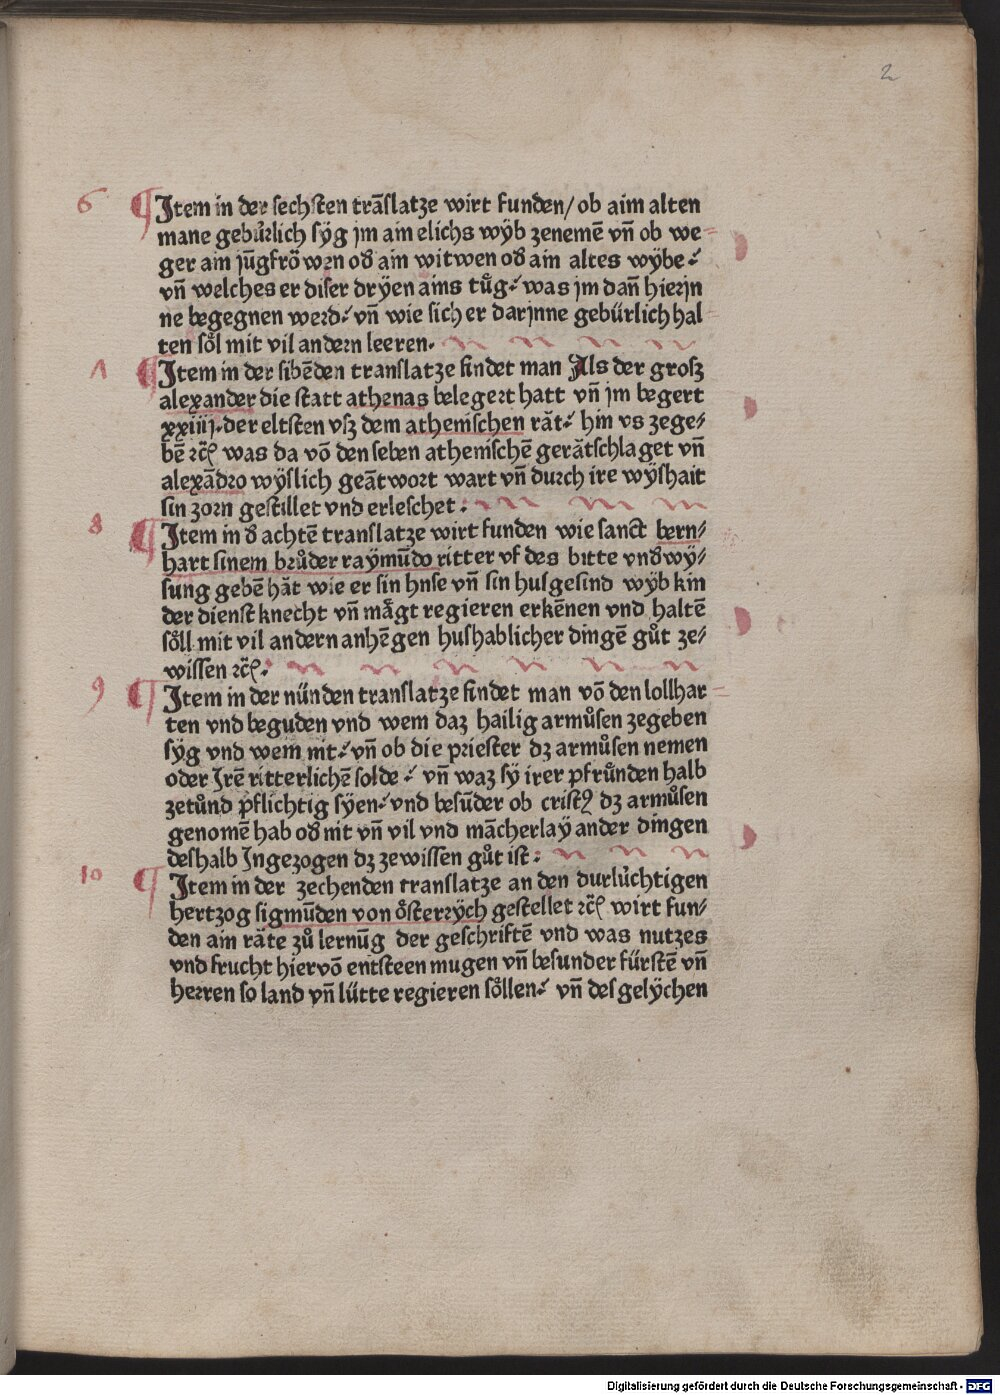 2
6 ¶ Item in der sechsten trāslatze wirt funden/ ob aim alten
mane gebu̇rlich sÿg jm ain elichs wÿb zenemē vn̄ ob we⸗
ger ain jūgfrōwen od ain witwen od ain altes wÿbe⸗
vn̄ welches er diser drÿen ains tůg⸗ was jm dan̄ hierjn
ne begegnen werd⸗ vn̄ wie sich er darjnne gebürlich hal⸗
ten so̊l mit vil andern leeren.
7 ¶ Item in der sibēden translatze findet man Als der grosz
alexander die statt athenas belegert hatt vn̄ jm begert
xxiiij. der eltsten vsz dem athenischen rät⸗ hin vs zege⸗
bē ⁊c̄ was da vō den seben athenischē gerätschlaget vn̄
alexādro wÿslich geātwort wart vn̄ durch ire wÿshait
sin zorn gestillet vnd erleschet :
8 ¶ Item in d achtē translatze wirt funden wie sanct bern⸗
hart sinem brůder raÿmūdo ritter vf des bitte vnd wÿ⸗
sung gebē hät wie er sin hnse vn̄ sin husgesind wÿb kin
der dienst knecht vn̄ mägt regieren erkēnen vnd haltē
so̊ll mit vil andern anhēgen hushablicher dingē gůt ze⸗
wissen ⁊c̄.
9 ¶ Item in der nünden translatze findet man vō den lollhar⸗
ten vnd beguden vnd wem daz hailig armůsen zegeben
sÿg vnd wem nit⸗ vn̄ ob die priester dz armůsen nemen
oder Irē ritterlichē solde⸗ vn̄ waz sÿ irer pfrůnden halb
zetůnd pflichtig sÿen⸗ vnd besūder ob cristꝰ dz armůsen
genomē hab od nit vn̄ vil vnd mācherlaÿ ander dingen
deshalb Ingezogen dz zewissen gůt ist :
10 ¶ Item in der zechenden translatze an den durlüchtigen
hertzog sigmūden von o̊sterrÿch gestellet ⁊c̄ wirt fun⸗
den ain räte zů lernūg der geschriftē vnd was nutzes
vnd frucht hiervō entsteen mugen vn̄ besunder fürstē vn̄
herren so land vn̄ lütte regieren so̊llen⸗ vn̄ des gelÿchen
Digitalisierung gefördert durch die Deutsche Forschungsgemeinschaft - DFG